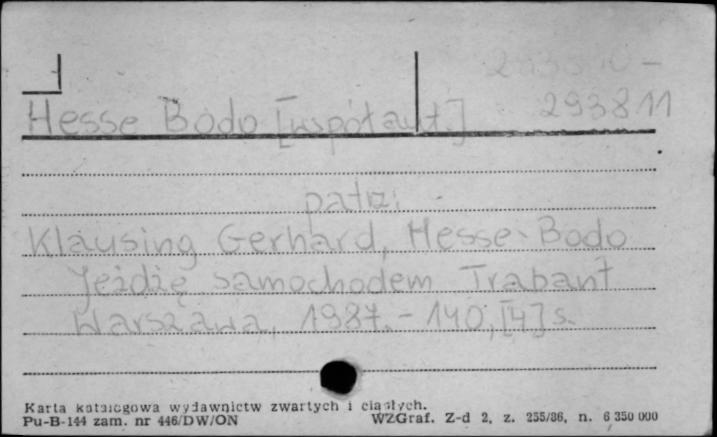 293810-
Hesse Bodo [współaut.] 293811
patrz:
Klausing Gerhard, Hesse Bodo
Jeżdżę samochodem Trabant
Warszawa, 1987. - 140, [4] s.
Karta katalogowa wydawnictw zwartych i ciągłych.
Pu-B-144 zam. nr 446/DW/ON WZGraf. Z-d 2, z. 255/86, n. 6 350 000